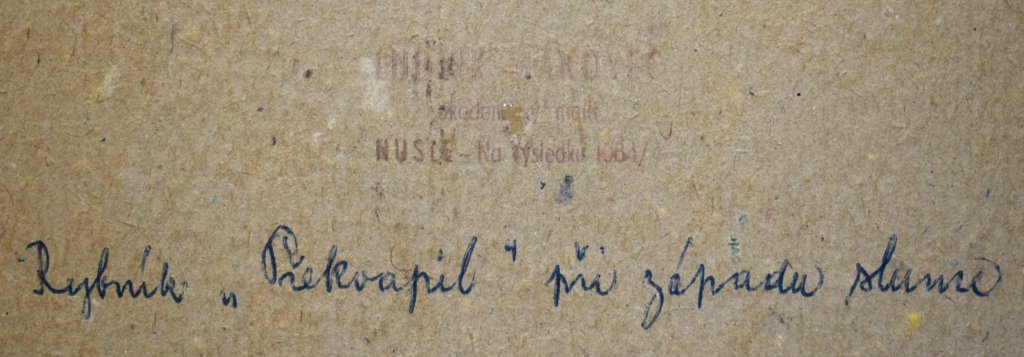 LUDVÍK VAKOVEC
akademický malíř
NUSLE – Na Výsledku
Rybník „Překvapil“ při západu slunce